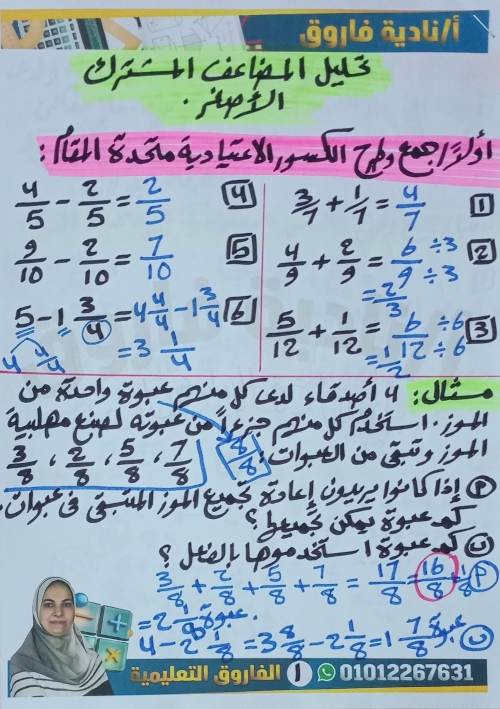 أ/نادية فاروق
تحليل المضاعف المشترك
الأصغر.
أولاً/جمع وطرح الكسور الاعتيادية متحدة المقام:
1 3/7 + 1/7 = 4/7
4 4/5 - 2/5 = 2/5
2 4/9 + 2/9 = 6/9 ÷3 ÷3
= 2/3
5 9/10 - 2/10 = 7/10
3 5/12 + 1/12 = 6/12 ÷6 ÷6
= 1/2
6 5 - 1 3/4 = 4 4/4 - 1 3/4
4 4/4 = 3 1/4
مثال: 4 أصدقاء لدى كل منهم عبوة واحدة من
الموز. استخدم كل منهم جزءاً من عبوته لصنع مهلبية
الموز وتبقى من العبوات: 8/8
7/8 ، 5/8 ، 2/8 ، 3/8
P إذا كانوا يريدون إعادة تجميع الموز المتبقى فى عبوات.
كم عبوة يمكن تجميعها؟
ب كم عبوة استخدموها بالفعل؟
P 3/8 + 2/8 + 5/8 + 7/8 = 17/8 = 16/8 + 1/8
= 2 1/8 عبوة.
ب 4 - 2 1/8 = 3 8/8 - 2 1/8 = 1 7/8 عبوة
01012267631 1 الفاروق التعليمية